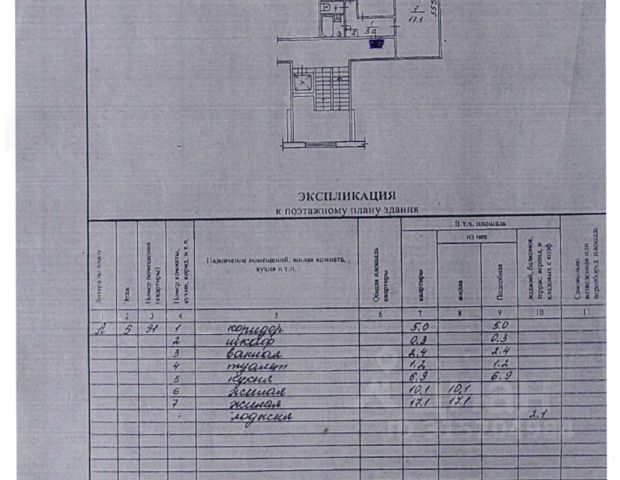 4
1
5.0
3
2
7
17.1
5.55
ЭКСПЛИКАЦИЯ
к поэтажному плану здания
Литера по плану
Этаж
Номер помещения (квартиры)
Номер комнаты, кухни, корид. и т.п.
Назначение помещений: жилая комната, кухня и т.п.
Общая площадь квартиры
В т.ч. площадь
из нее
квартиры
жилая
Подсобная
лоджий, балконов, террас, веранд и кладовых с коэф
Самовольно возведенная или переоборуд. площадь
1 2 3 4 5 6 7 8 9 10 11
А 5 91 1 коридор 5,0 5.0
2 шкаф 0,3 0.3
3 ванная 2,4 2.4
4 туалет 1,2 1.2
5 кухня 6,9 6,9
6 жилая 10,1 10,1
7 жилая 17,1 17,1
лоджия 2.1